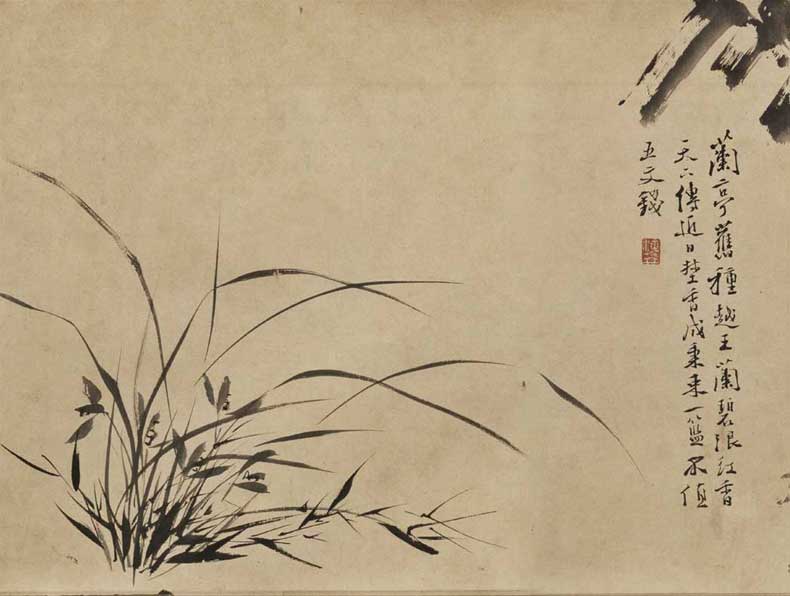 蘭亭舊種越王蘭碧浪紅香
天下傳近日埜香成秉束一籃不值
五文錢